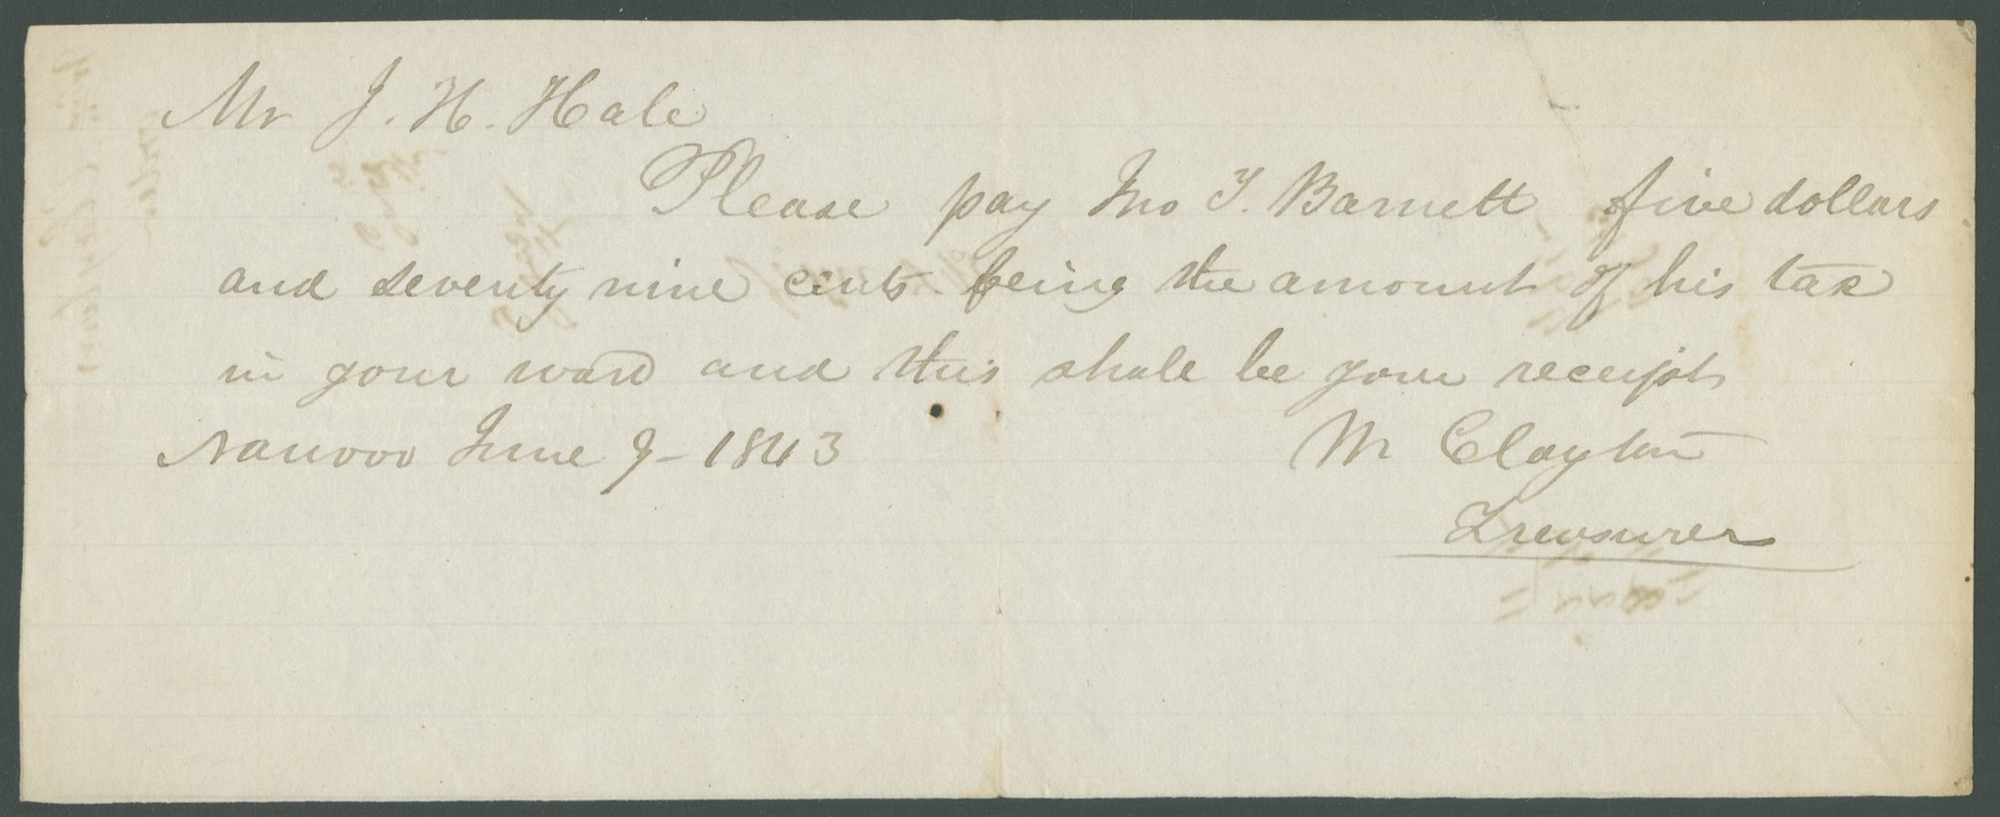 Mr J. H. Hale
Please pay Jno T. Barnett five dollars
and seventy nine cents being the amount of his tax
in your ward and this shall be your receipt
Nauvoo June 9 - 1843 M Clayton
Treasurer